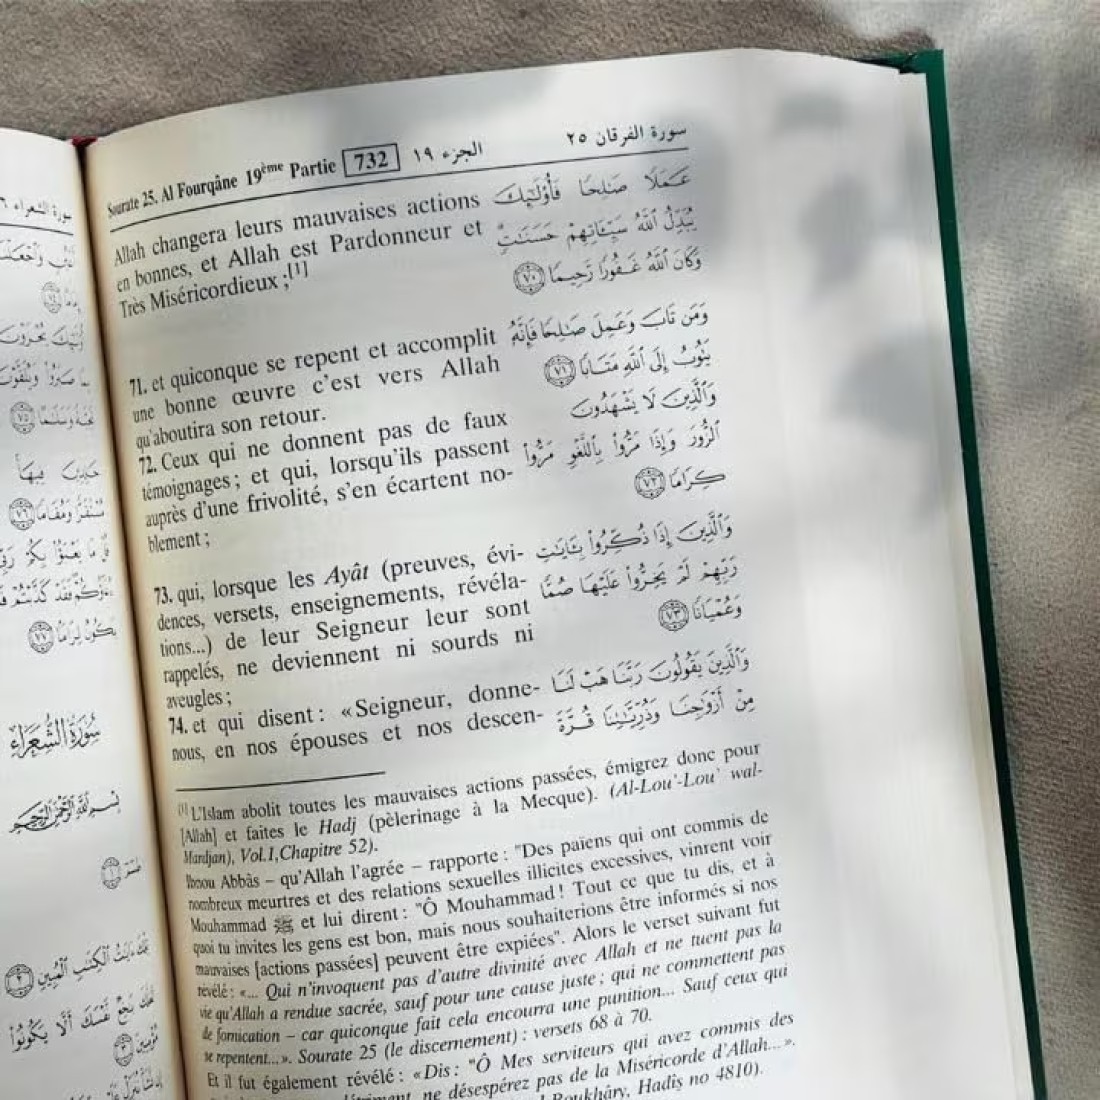 Sourate 25. Al Fourqâne 19ème Partie 732 الجزء ١٩ سورة الفرقان ٢٥
Allah changera leurs mauvaises actions
en bonnes, et Allah est Pardonneur et
Très Miséricordieux ;[1]
71. et quiconque se repent et accomplit
une bonne œuvre c'est vers Allah
qu'aboutira son retour.
72. Ceux qui ne donnent pas de faux
témoignages ; et qui, lorsqu'ils passent
auprès d'une frivolité, s'en écartent no-
blement ;
73. qui, lorsque les Ayât (preuves, évi-
dences, versets, enseignements, révéla-
tions...) de leur Seigneur leur sont
rappelés, ne deviennent ni sourds ni
aveugles ;
74. et qui disent : «Seigneur, donne-
nous, en nos épouses et nos descen-
عَمَلًا صَٰلِحًا فَأُوْلَٰٓئِكَ
يُبَدِّلُ ٱللَّهُ سَيِّـَٔاتِهِمْ حَسَنَٰتٍ
وَكَانَ ٱللَّهُ غَفُورًا رَّحِيمًا ٧٠
وَمَن تَابَ وَعَمِلَ صَٰلِحًا فَإِنَّهُۥ
يَتُوبُ إِلَى ٱللَّهِ مَتَابًا ٧١
وَٱلَّذِينَ لَا يَشْهَدُونَ
ٱلزُّورَ وَإِذَا مَرُّواْ بِٱللَّغْوِ مَرُّواْ
كِرَامًا ٧٢
وَٱلَّذِينَ إِذَا ذُكِّرُواْ بِـَٔايَٰتِ
رَبِّهِمْ لَمْ يَخِرُّواْ عَلَيْهَا صُمًّا
وَعُمْيَانًا ٧٣
وَٱلَّذِينَ يَقُولُونَ رَبَّنَا هَبْ لَنَا
مِنْ أَزْوَٰجِنَا وَذُرِّيَّٰتِنَا قُرَّةَ
[1] L'Islam abolit toutes les mauvaises actions passées, émigrez donc pour
[Allah] et faites le Hadj (pèlerinage à la Mecque). (Al-Lou'-Lou' wal-
Mardjan), Vol.I,Chapitre 52).
Ibnou Abbâs – qu'Allah l'agrée – rapporte : "Des païens qui ont commis de
nombreux meurtres et des relations sexuelles illicites excessives, vinrent voir
Mouhammad ﷺ et lui dirent : "Ô Mouhammad ! Tout ce que tu dis, et à
quoi tu invites les gens est bon, mais nous souhaiterions être informés si nos
mauvaises [actions passées] peuvent être expiées". Alors le verset suivant fut
révélé : «... Qui n'invoquent pas d'autre divinité avec Allah et ne tuent pas la
vie qu'Allah a rendue sacrée, sauf pour une cause juste ; qui ne commettent pas
de fornication – car quiconque fait cela encourra une punition... Sauf ceux qui
se repentent...». Sourate 25 (le discernement) : versets 68 à 70.
Et il fut également révélé : «Dis : "Ô Mes serviteurs qui avez commis des
ne désespérez pas de la Miséricorde d'Allah...».
Boukhâry, Hadîs no 4810).
سورة الشعراء
سُورَةُ الشُّعَرَاءِ
بِسْمِ ٱللَّهِ ٱلرَّحْمَٰنِ ٱلرَّحِيمِ